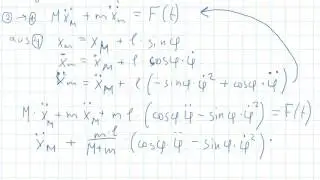 ③ → ④ M ẍ_M + m ẍ_m = F(t)
aus ④ x_m = x_M + l · sinφ
ẋ_m = ẋ_M + l · cosφ · φ̇
ẍ_m = ẍ_M + l · (-sinφ · φ̇² + cosφ · φ̈)
M · ẍ_M + m · ẍ_M + m · l · (cosφ φ̈ - sinφ · φ̇²) = F(t)
ẍ_M + m·l/(M+m) (cosφ φ̈ - sinφ · φ̇²) ·